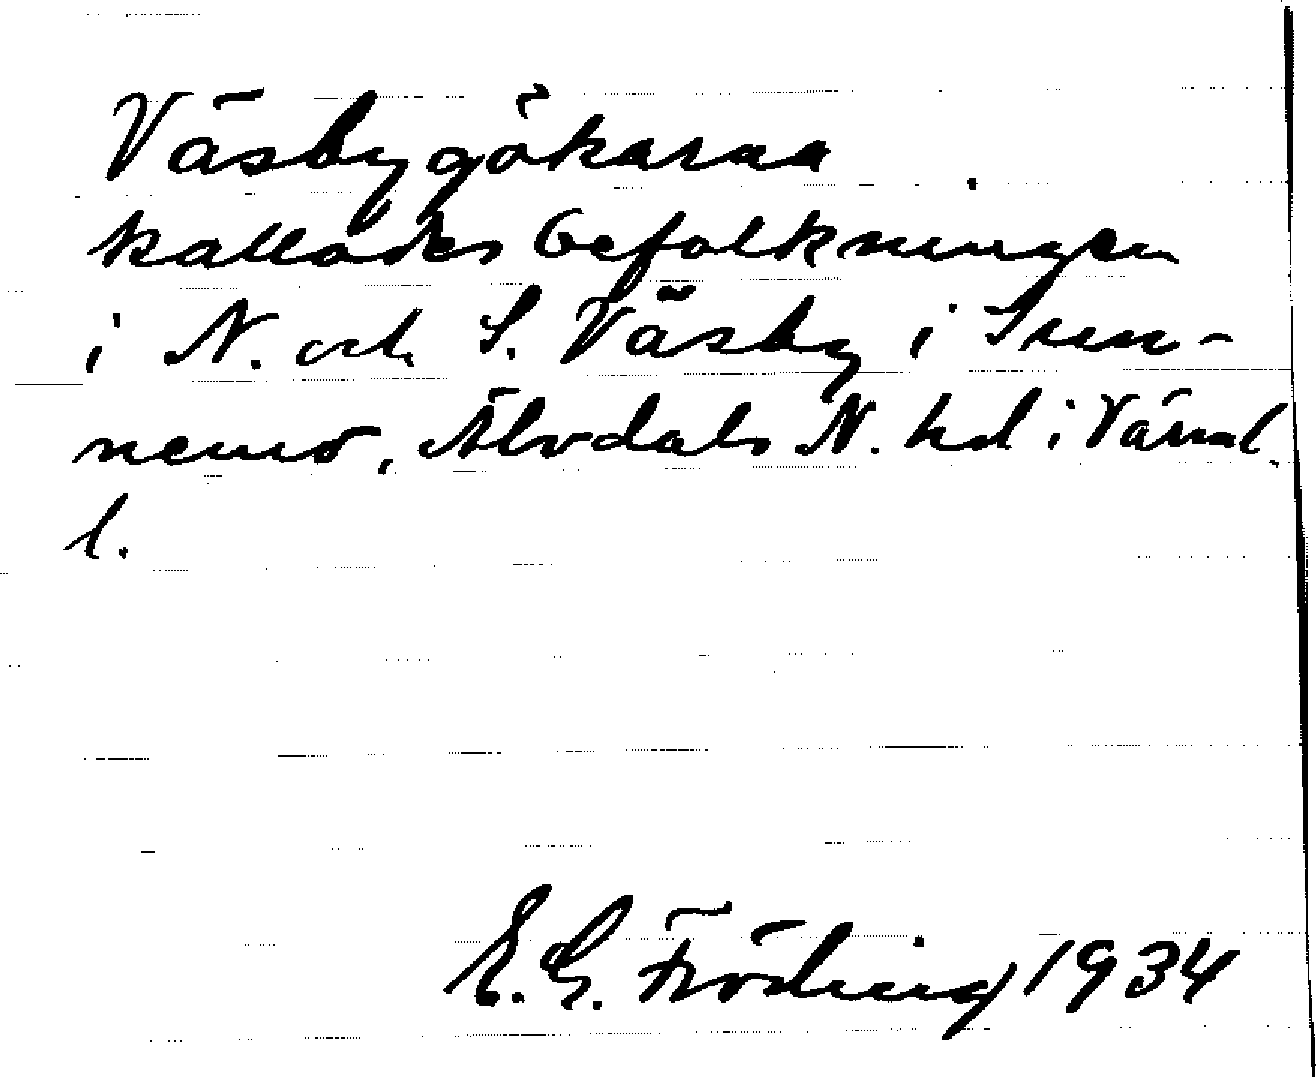 Väsbygökarna
kallades befolkningen
i N. och S. Väsby i Sun-
nemo, Älvdals N. hd i Värml.
l.
E. G. Fröding 1934